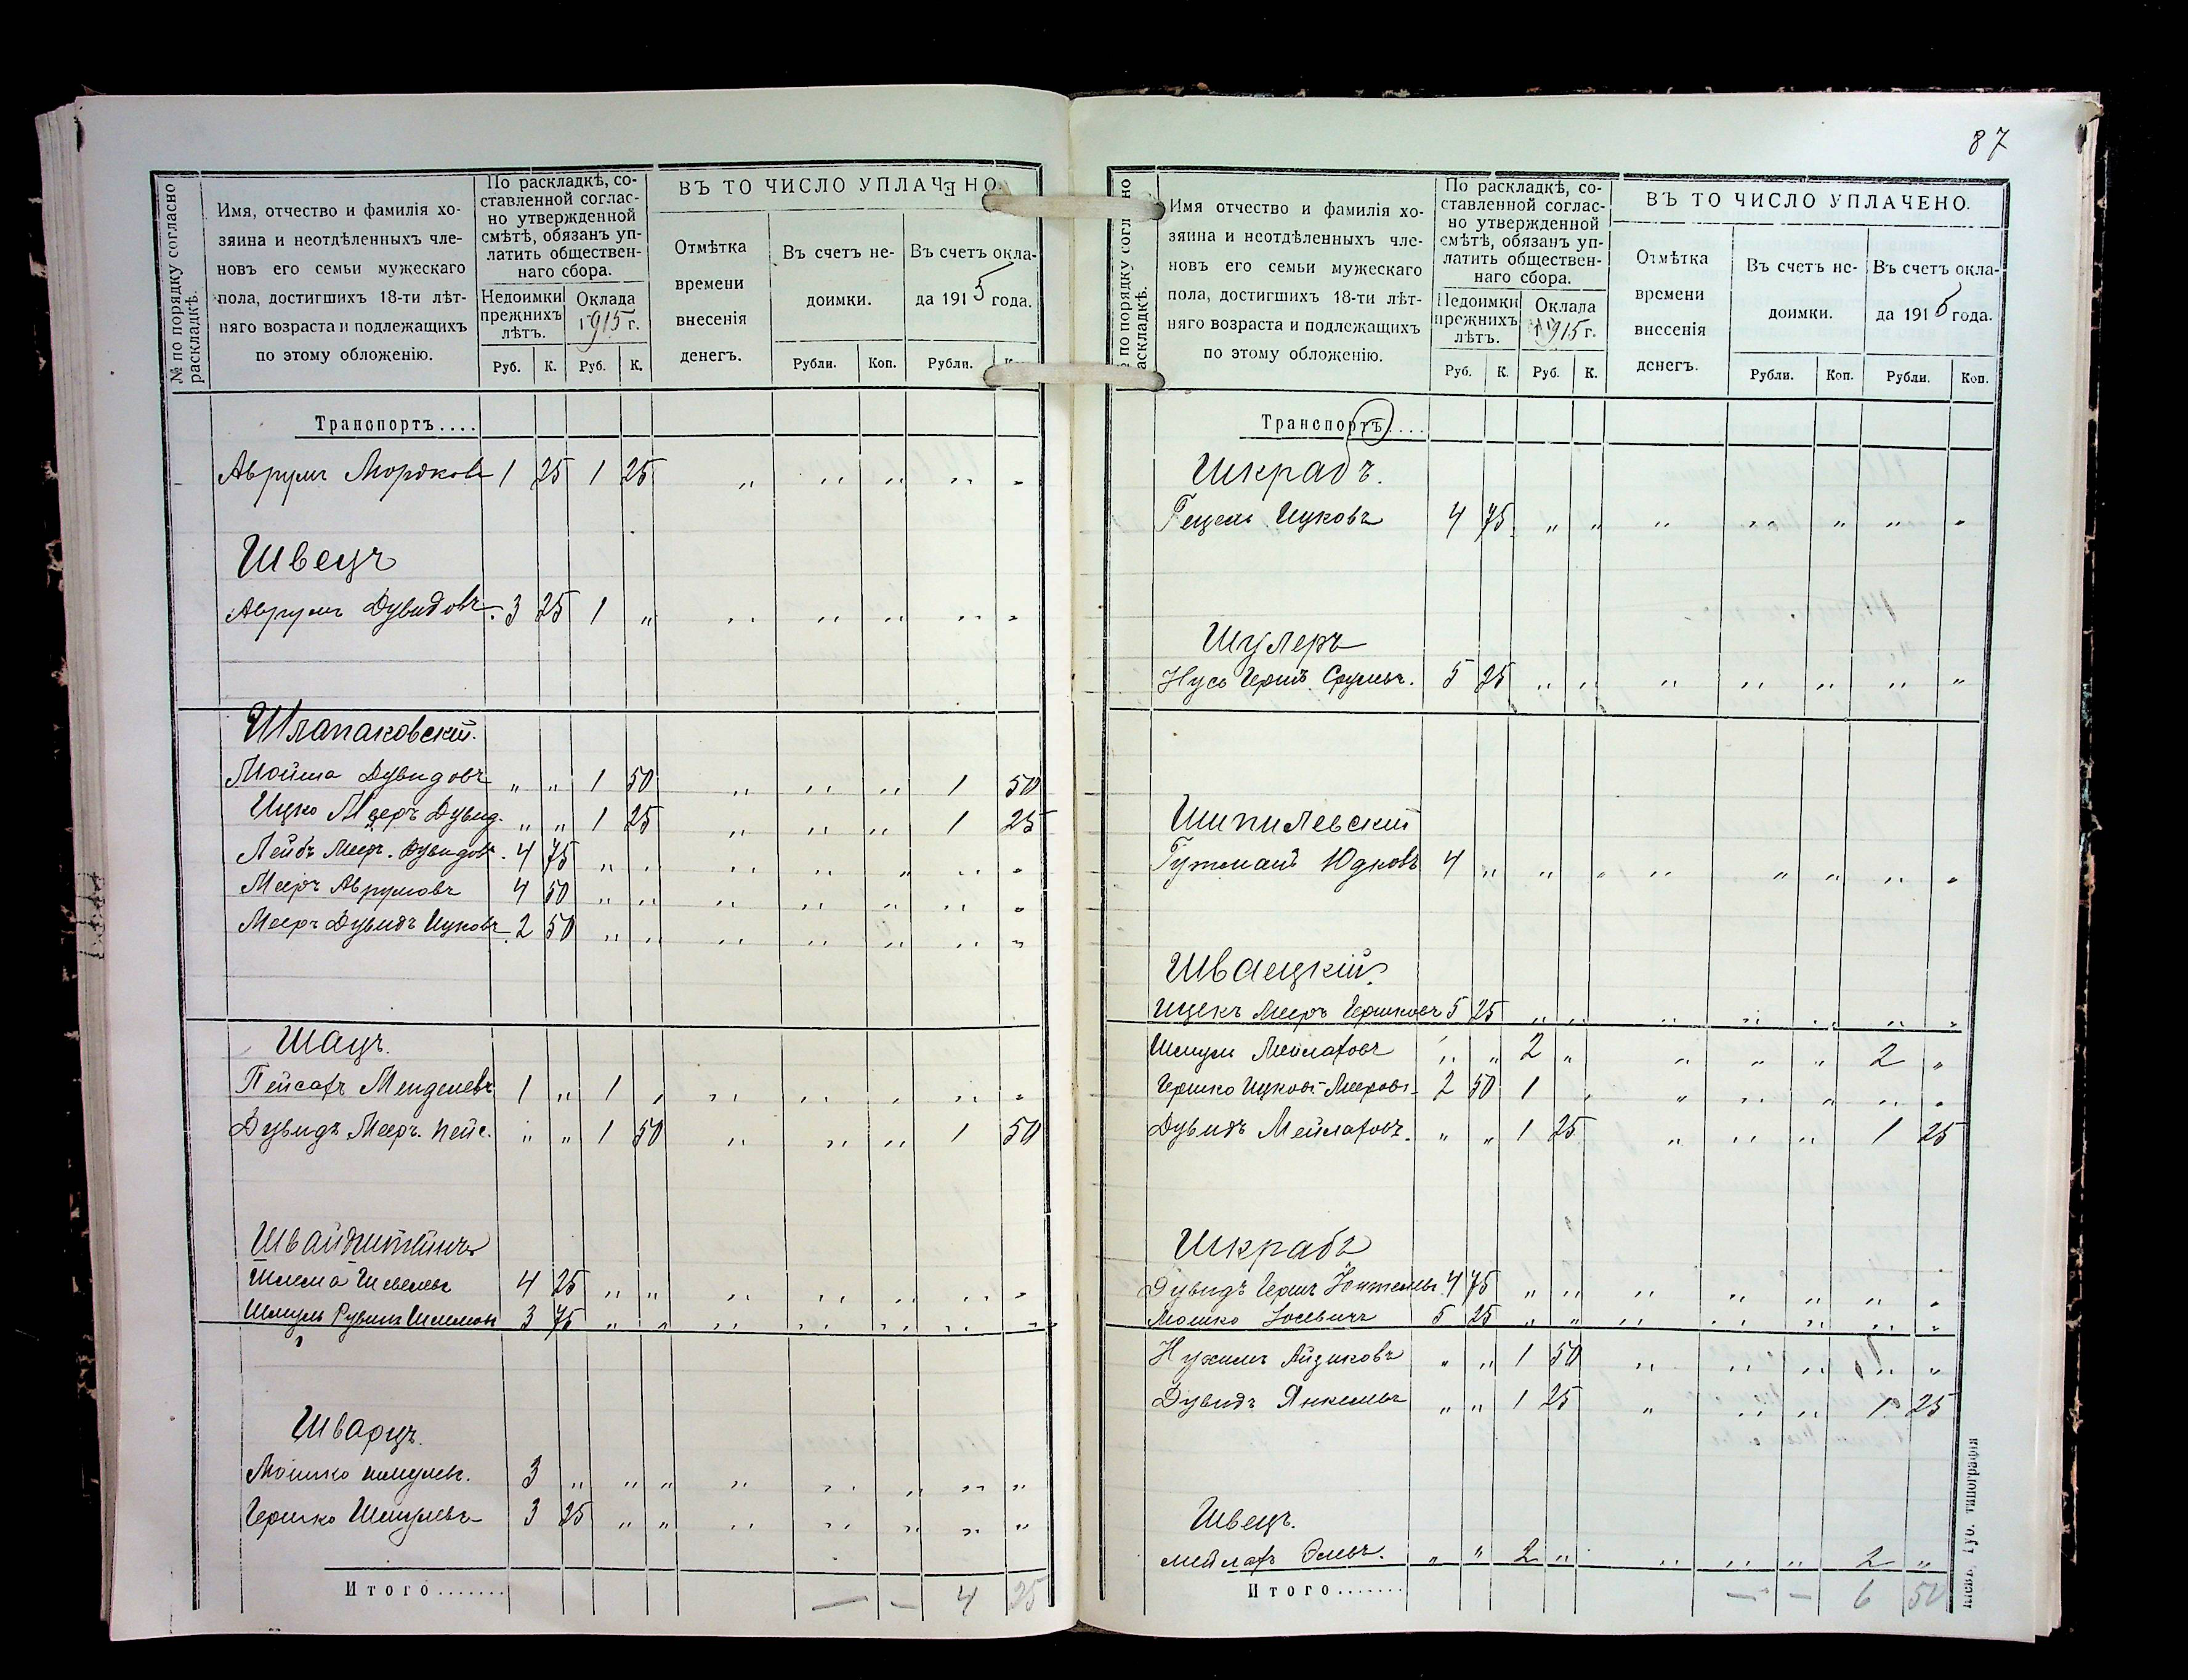 87
№ по порядку согласно раскладкѣ.
Имя, отчество и фамилія хо-
зяина и неотдѣленныхъ чле-
новъ его семьи мужескаго
пола, достигшихъ 18-ти лѣт-
няго возраста и подлежащихъ
по этому обложенію.
По раскладкѣ, со-
ставленной соглас-
но утвержденной
смѣтѣ, обязанъ уп-
латить обществен-
наго сбора.
Недоимки прежнихъ лѣтъ.
Оклада 1915 г.
Руб. К. Руб. К.
ВЪ ТО ЧИСЛО УПЛАЧЕНО.
Отмѣтка
времени
внесенія
денегъ.
Въ счетъ не-
доимки.
Въ счетъ окла-
да 1915 года.
Рубли. Коп. Рубли.
Транспортъ....
Аврумъ Мордковъ 1 25 1 25 " " " " "
Швецъ
Аврумъ Дувидовъ. 3 25 1 " " " " " "
Шлапаковскій.
Мойша Дувидовъ " " 1 50 " " " 1 50
Ицко Мееръ Дувид. " " 1 25 " " " 1 25
Лейбъ Меер. Дувидов. 4 75 " " " " " " "
Мееръ Аврумовъ 4 50 " " " " " " "
Мееръ Дувидъ Ицковъ. 2 50 " " " " " " "
Шацъ.
Пейсахъ Менделевъ 1 " 1 " " " " " "
Дувидъ Мееръ. Пейс. " " 1 50 " " " 1 50
Швайдштейнъ
Шлема Шевелевъ 4 25 " " " " " " "
Шмуль Рувинъ Шлемовъ 3 75 " " " " " " "
Шварцъ.
Мошко Шмулев. 3 " " " " " " " "
Гершко Шмулевъ 3 25 " " " " " " "
Итого....... — — 4 25
№ по порядку согласно раскладкѣ.
Имя отчество и фамилія хо-
зяина и неотдѣленныхъ чле-
новъ его семьи мужескаго
пола, достигшихъ 18-ти лѣт-
няго возраста и подлежащихъ
по этому обложенію.
По раскладкѣ, со-
ставленной соглас-
но утвержденной
смѣтѣ, обязанъ уп-
латить обществен-
наго сбора.
Недоимки прежнихъ лѣтъ.
Оклада 1915 г.
Руб. К. Руб. К.
ВЪ ТО ЧИСЛО УПЛАЧЕНО.
Отмѣтка
времени
внесенія
денегъ.
Въ счетъ не-
доимки.
Въ счетъ окла-
да 1915 года.
Рубли. Коп. Рубли. Коп.
Транспортъ....
Шкрабъ.
Гецель Ицковъ 4 75 " " " " " " "
Шулеръ
Нусь Гершъ Срулев. 5 25 " " " " " " "
Шипилевскій
Гутманъ Юдковъ 4 " " " " " " " "
Шваецкій
Ицекъ Мееръ Гершковъ 5 25 " " " " " " "
Шмуль Мейлаховъ " " 2 " " " " 2 "
Гершко Ицковъ-Мееровъ 2 50 1 " " " " " "
Дувидъ Мейлаховъ. " " 1 25 " " " 1 25
Шкрабъ
Дувидъ Гершъ 4 75 " " " " " " "
Мошко Іосевичъ 5 25 " " " " " " "
Нухимъ Айзиковъ " " 1 50 " " " " "
Дувидъ Янкелевъ " " 1 25 " " " 1 25
Швецъ.
Мейлахъ " " 2 " " " " 2 "
Итого....... — — 6 50
Губ. типографія